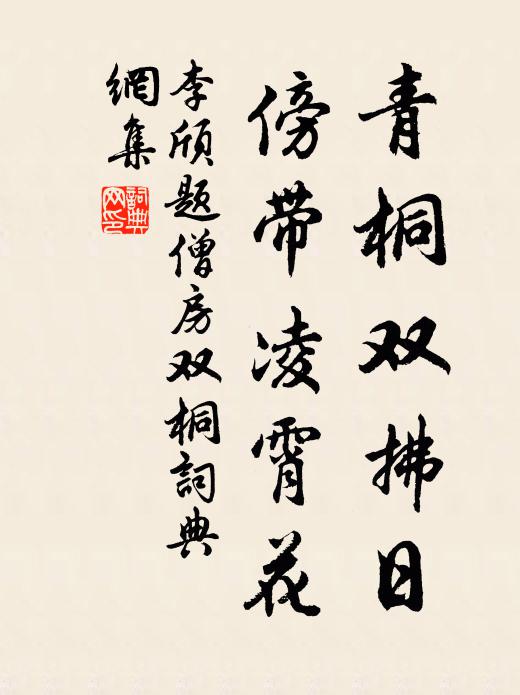 青桐双拂日
傍带凌霄花
李颀题僧房双桐詞典
網集
詞典网印